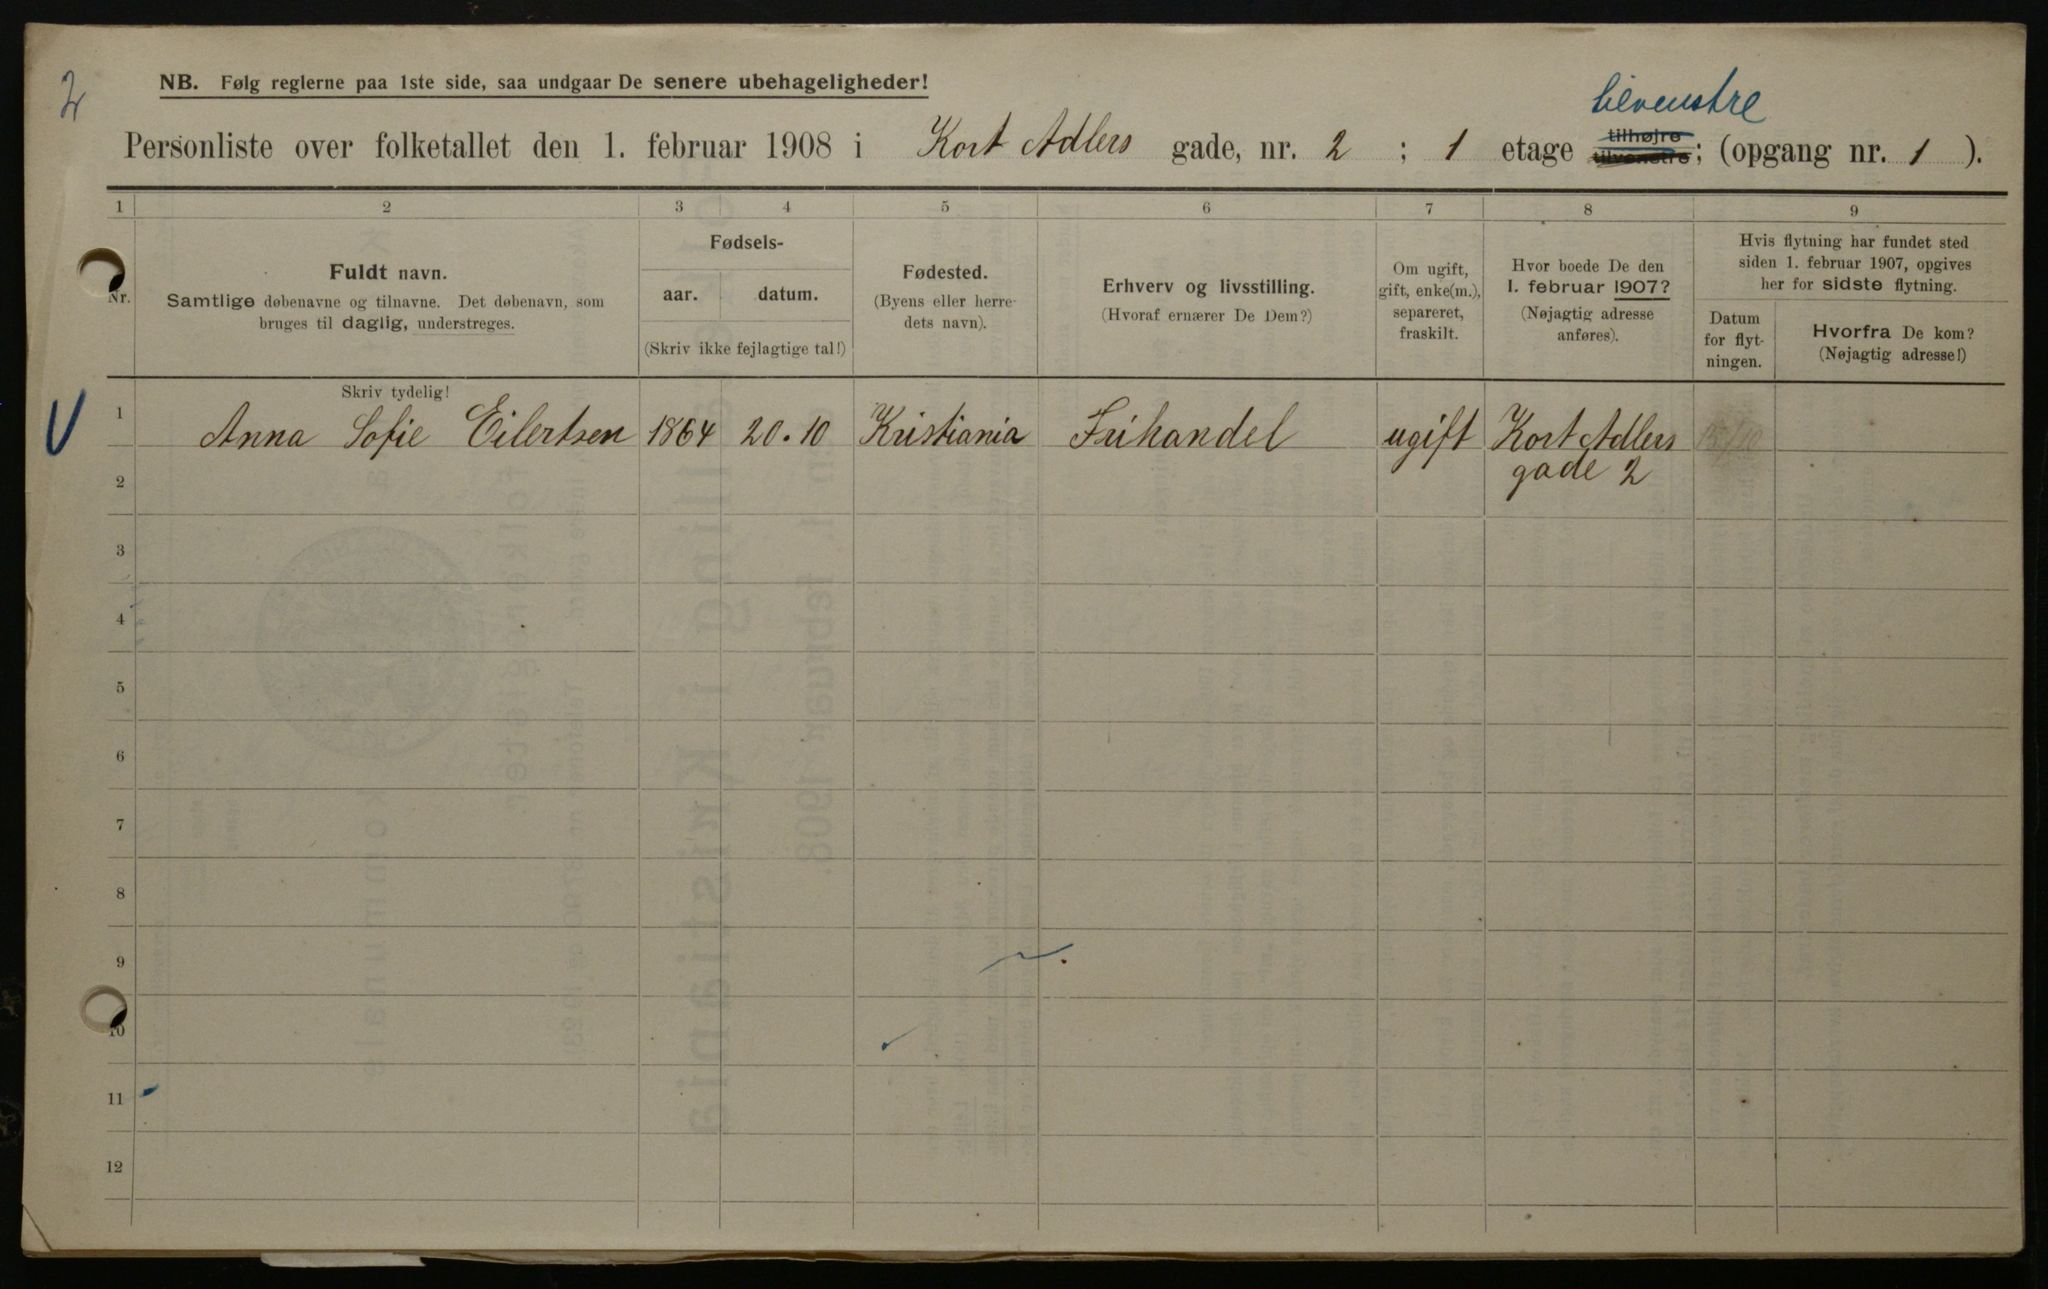 2
NB. Følg reglerne paa 1ste side, saa undgaar De senere ubehageligheder!
tilvenstre
Personliste over folketallet den 1. februar 1908 i Kort Adlers gade, nr. 2 ; 1 etage tilhøjre tilvenstre; (opgang nr. 1 ).
1 2 3 4 5 6 7 8 9
Nr.
Fuldt navn.
Samtlige døbenavne og tilnavne. Det døbenavn, som
bruges til daglig, understreges.
Fødsels-
aar. datum.
(Skriv ikke fejlagtige tal!)
Fødested.
(Byens eller herre-
dets navn).
Erhverv og livsstilling.
(Hvoraf ernærer De Dem?)
Om ugift,
gift, enke(m.),
separeret,
fraskilt.
Hvor boede De den
1. februar 1907?
(Nøjagtig adresse
anføres).
Hvis flytning har fundet sted
siden 1. februar 1907, opgives
her for sidste flytning.
Datum
for flyt-
ningen.
Hvorfra De kom?
(Nøjagtig adresse!)
Skriv tydelig!
1 Anna Sofie Eilertsen 1864 20.10 Kristiania Frihandel ugift Kort Adlers
gade 2
2
3
4
5
6
7
8
9
10
11
12